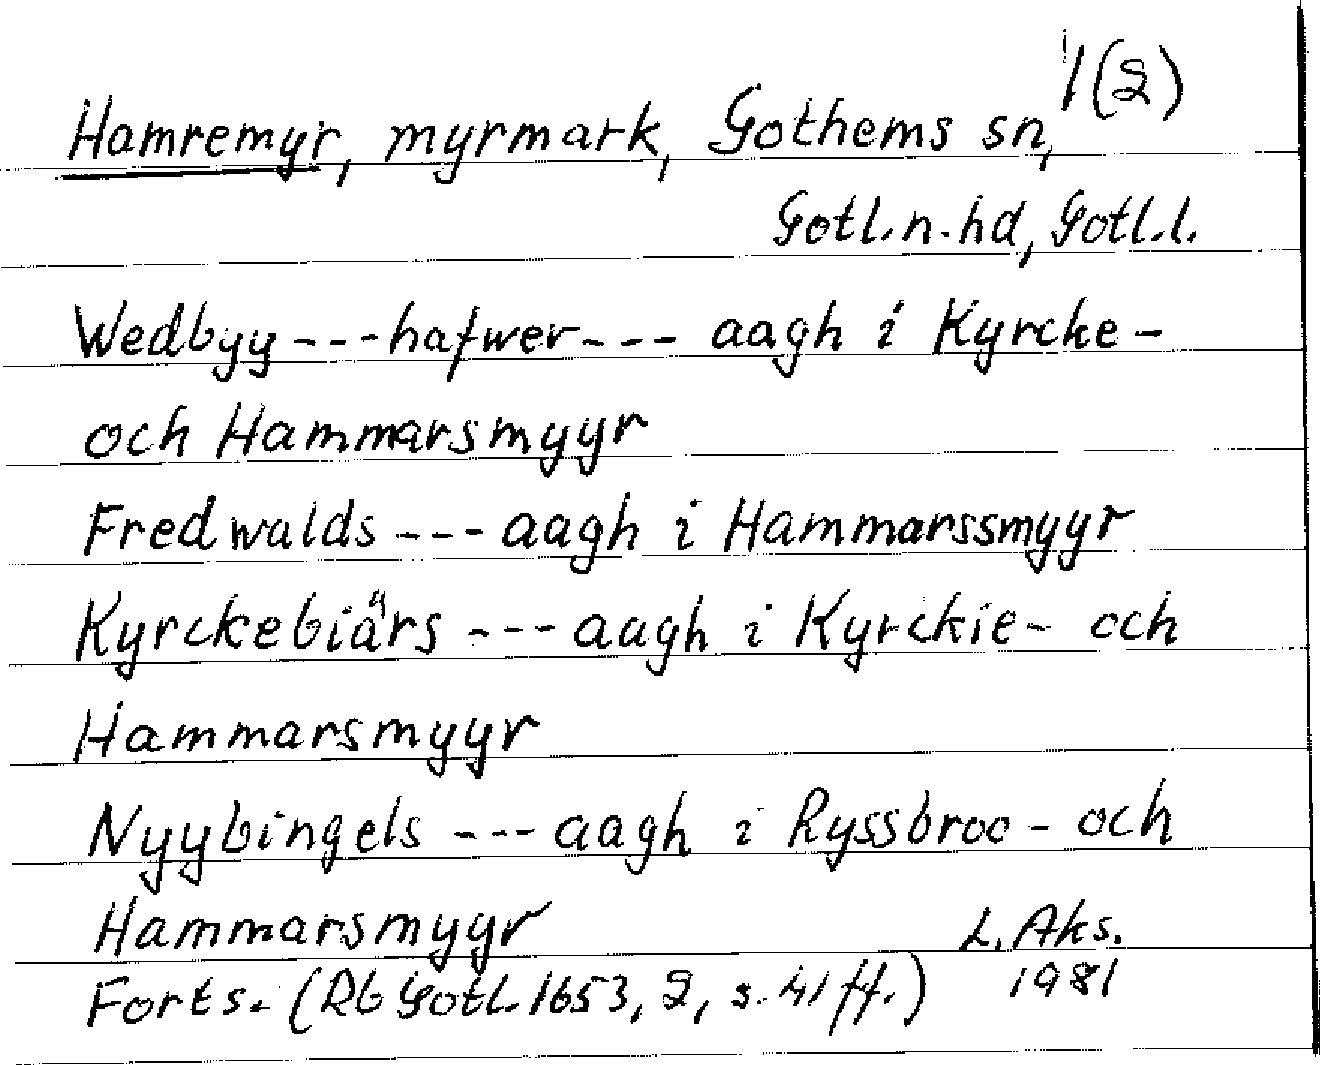 1(2)
Hamremyr, myrmark, Gothems sn,
Gotl.n.hd, Gotl.l.
Wedbyy---hafwer--- aagh i Kyrcke-
och Hammarsmyyr
Fredwalds---aagh i Hammarssmyyr
Kyrckebiärs---aagh i Kyrckie- och
Hammarsmyyr
Nyybingels---aagh i Ryssbroo- och
Hammarsmyyr
L. Aks.
Forts. (Rb Gotl. 1653, 2, s. 41 ff.)
1981